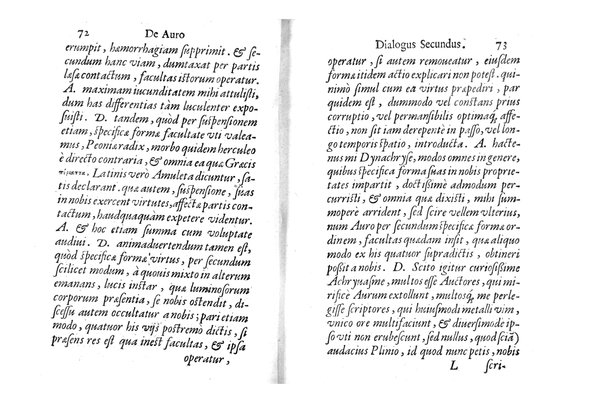 72 De Auro
erumpit, hæmorrhagiam supprimit. & se-
cundum hanc viam, dumtaxat per partis
læsæ contactum, facultas istorum operatur.
A. maximam iucunditatem mihi attulisti,
dum has differentias tàm luculenter expo-
suisti. D. tandem, quod per suspensionem
etiam, specificæ formæ facultate vti valea-
mus, Peoniæ radix, morbo quidem herculeo
è directo contraria, & omnia ea quæ Græcis
Latinis verò Amuleta dicuntur, sa-
tis declarant. quæ autem, suspensione, suas
in nobis exercent virtutes, affectæ partis con-
tactum, haudquaquam expetere videntur.
A. & hoc etiam summa cum voluptate
audiui. D. animaduertendum tamen est,
quòd specificæ formæ virtus, per secundum
scilicet modum, à quouis mixto in alterum
emanans, lucis instar, quæ luminosorum
corporum præsentia, se nobis ostendit, di-
scessu autem occultatur a nobis; pari etiam
modo, quatuor his vijs postremo dictis, si
præsens res est qua inest facultas, & ipsa
operatur,
Dialogus Secundus. 73
operatur, si autem remoueatur, eiusdem
formæ itidem actio explicari non potest. qui-
nimò simul cum ea virtus præpediri, par
quidem est, dummodo vel constans prius
corruptio, vel permansibilis optimaq́, affe-
ctio, non sit iam derepentè in passo, vel lon-
go temporis spatio, introducta. A. hacte-
nus mi Dynachryse, modos omnes in genere,
quibus specificæ forma suas in nobis proprie-
tates impartit, doctissimè admodum per-
curristi, & omnia quæ dixisti, mihi sum-
mopere arrident, sed scire vellem vlterius,
num Auro per secundum specificæ formæ or-
dinem, facultas quædam insit, quæ aliquo
modo ex his quatuor supradictis, obtineri
possit a nobis. D. Scito igitur curiosissime
Achryuasme, multos esse Auctores, qui mi-
rificè Aurum extollunt, multosq́, me perle-
gisse scriptores, qui huiusmodi metalli vim,
vnico ore multifaciunt, & diuersimode ip-
so vti non erubescunt, sed nullus, quod sciã)
audacius Plinio, id quod nunc petis, nobis
L scri-